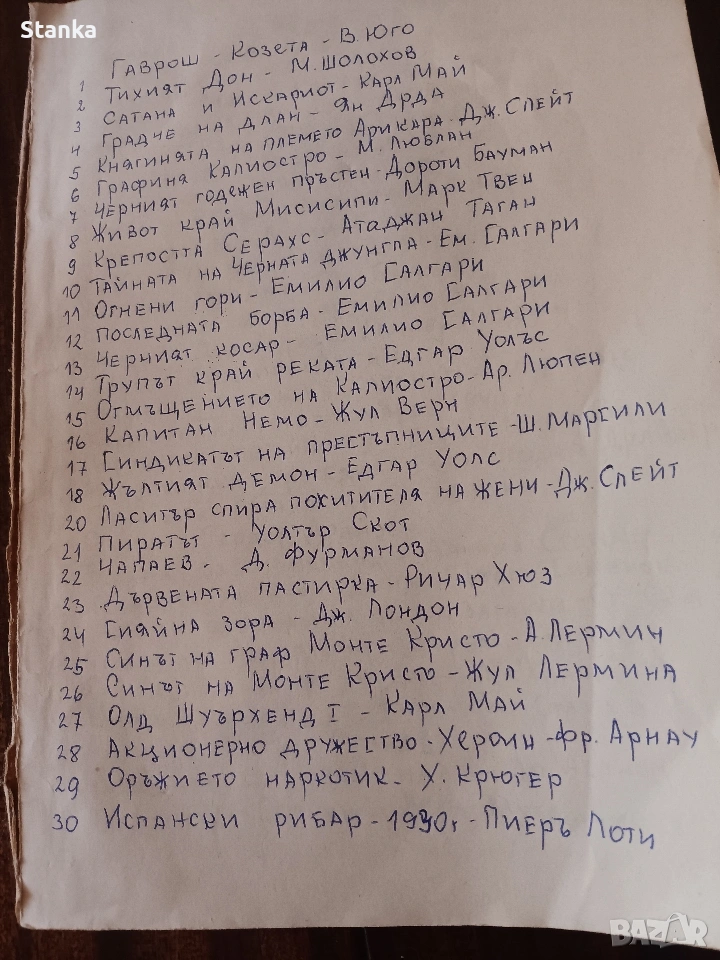 Stanka
1 Гаврош - Козета - В. Юго
2 Тихият Дон - М. Шолохов
3 Сатана и Искариот - Карл Май
4 Градче на длан - Ян Дрда
5 Княгинята на племето Арикара - Дж. Слейт
6 Графиня Калиостро - М. Люблан
7 Черният годежен пръстен - Дороти Бауман
8 Живот край Мисисипи - Марк Твен
9 Крепостта Серахс - Атаджан Таган
10 Тайната на Черната джунгла - Ем. Салгари
11 Огнени гори - Емилио Салгари
12 Последната борба - Емилио Салгари
13 Черният косар - Емилио Салгари
14 Трупът край реката - Едгар Уолъс
15 Отмъщението на Калиостро - Ар. Люпен
16 Капитан Немо - Жул Верн
17 Синдикатът на престъпниците - Ш. Марсили
18 Жълтият демон - Едгар Уолс
20 Ласитър спира похитителя на жени - Дж. Слейт
21 Пиратът - Уолтър Скот
22 Чапаев - Д. Фурманов
23 Дървената пастирка - Ричар Хюз
24 Сияйна зора - Дж. Лондон
25 Синът на граф Монте Кристо - А. Лермин
26 Синът на Монте Кристо - Жул Лермина
27 Олд Шуърхенд I - Карл Май
28 Акционерно дружество - Хероин - Фр. Арнау
29 Оръжието наркотик - Х. Крюгер
30 Испански рибар - г. - Пиеръ Лоти
BAZAR